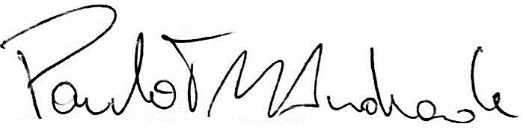 Paulo T M Andrade